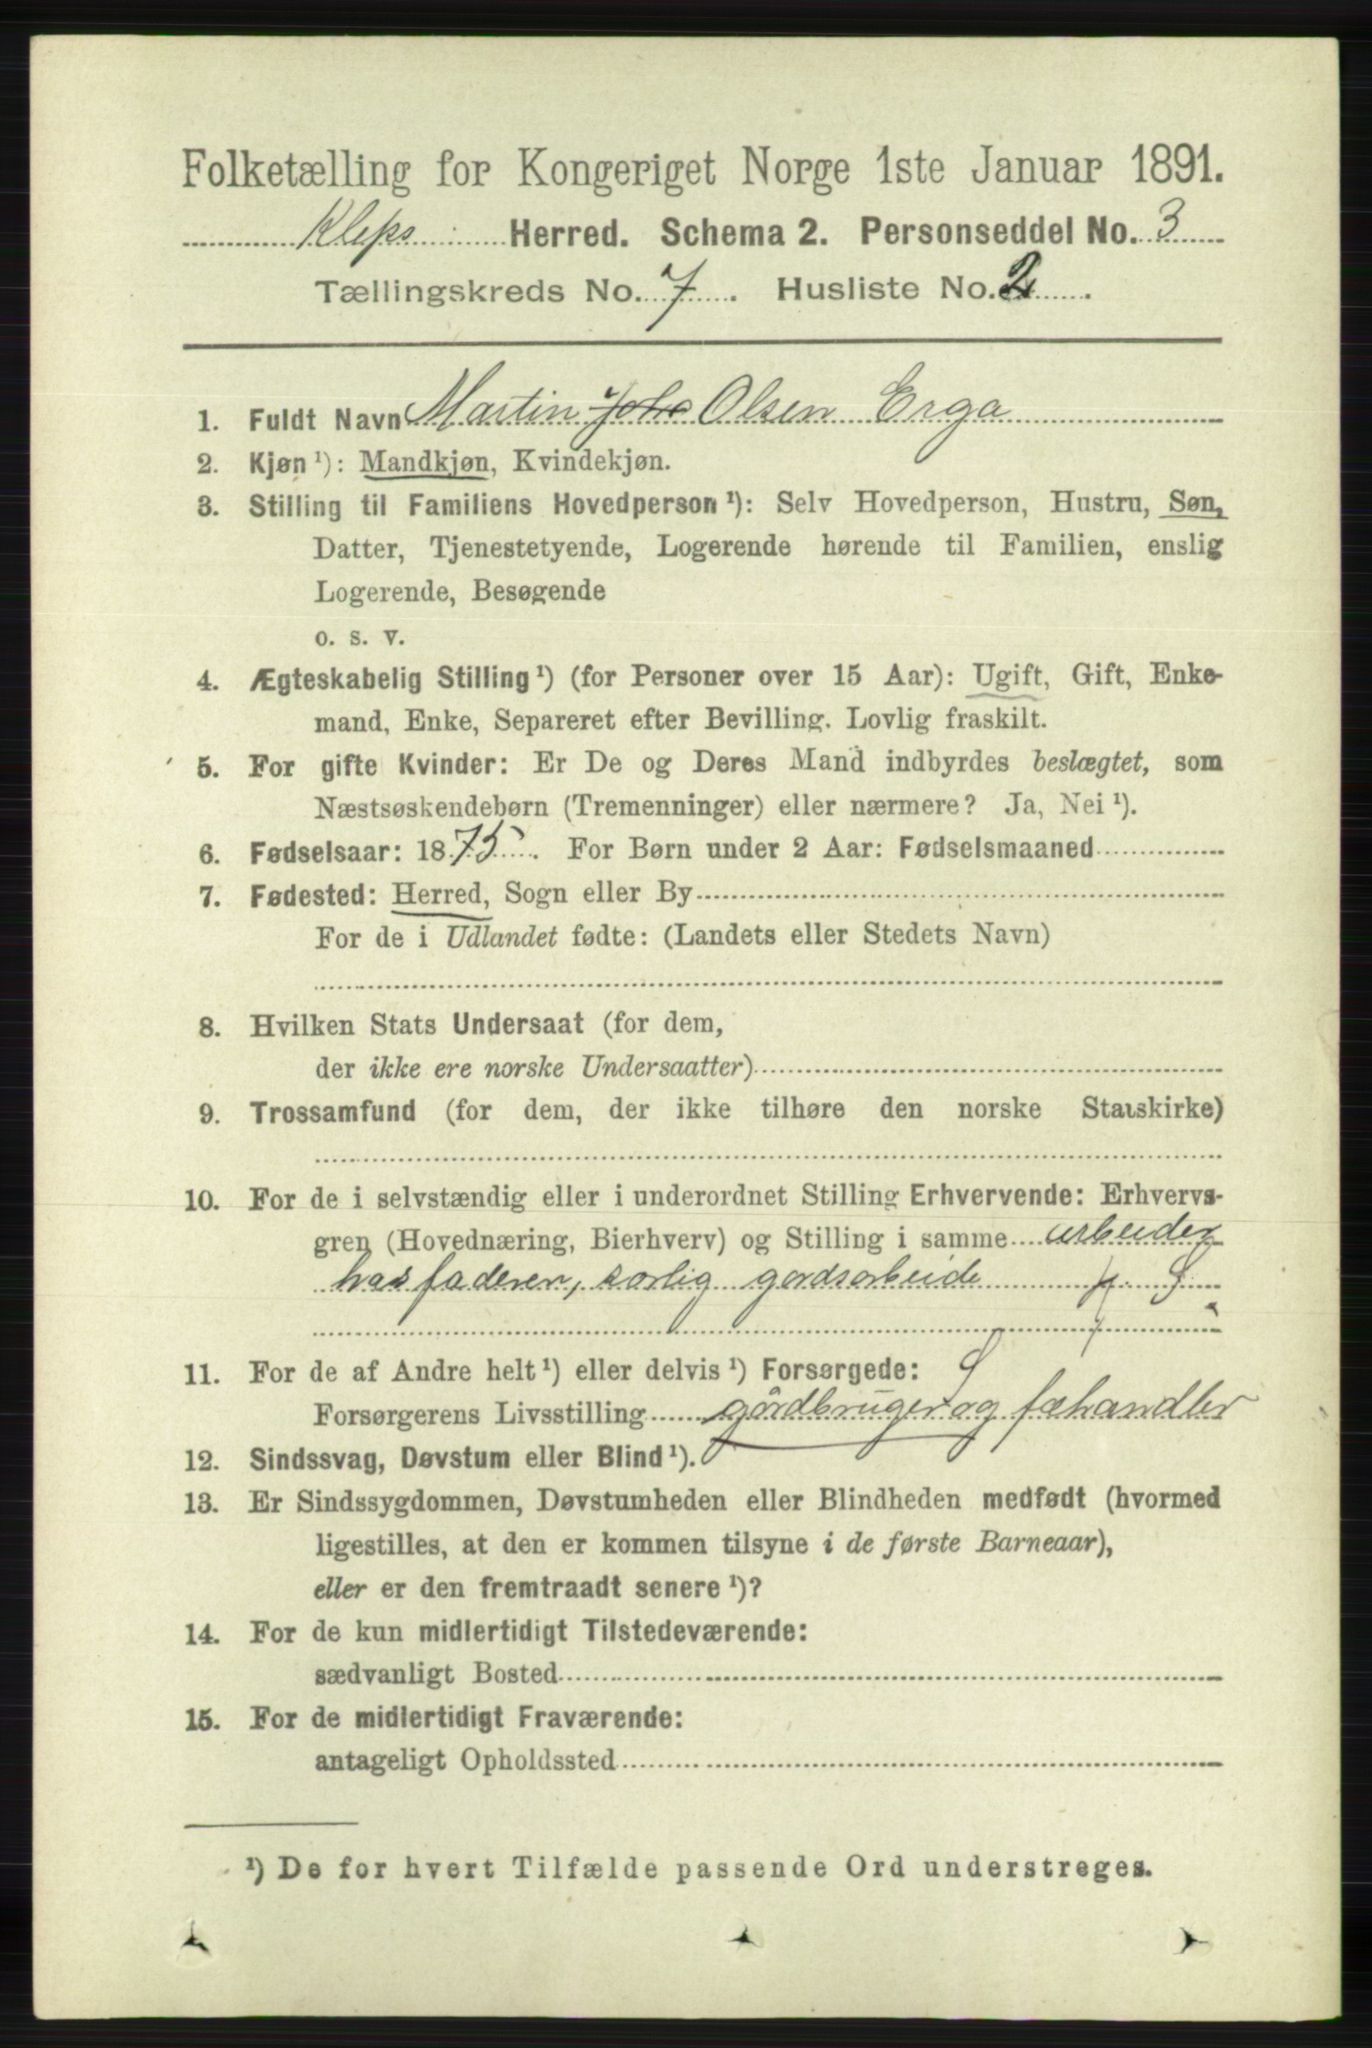 Folketælling for Kongeriget Norge 1ste Januar 1891.
Kleps Herred. Schema 2. Personseddel No. 3
Tællingskreds No. 7. Husliste No. 2.
1. Fuldt Navn Martin Olsen Erga
2. Kjøn ¹): Mandkjøn, Kvindekjøn.
3. Stilling til Familiens Hovedperson ¹): Selv Hovedperson, Hustru, Søn,
Datter, Tjenestetyende, Logerende hørende til Familien, enslig
Logerende, Besøgende
o. s. v.
4. Ægteskabelig Stilling ¹) (for Personer over 15 Aar): Ugift, Gift, Enke-
mand, Enke, Separeret efter Bevilling. Lovlig fraskilt.
5. For gifte Kvinder: Er De og Deres Mand indbyrdes beslægtet, som
Næstsøskendebørn (Tremenninger) eller nærmere? Ja, Nei ¹).
6. Fødselsaar: 1875. For Børn under 2 Aar: Fødselsmaaned
7. Fødested: Herred, Sogn eller By
For de i Udlandet fødte: (Landets eller Stedets Navn)
8. Hvilken Stats Undersaat (for dem,
der ikke ere norske Undersaatter)
9. Trossamfund (for dem, der ikke tilhøre den norske Statskirke)
10. For de i selvstændig eller i underordnet Stilling Erhvervende: Erhvervs-
gren (Hovednæring, Bierhverv) og Stilling i samme arbeider
has faderen, sorlig gordsarbeide
11. For de af Andre helt ¹) eller delvis ¹) Forsørgede: S
Forsørgerens Livsstilling gårdbruger og fæhandler
12. Sindssvag, Døvstum eller Blind ¹).
13. Er Sindssygdommen, Døvstumheden eller Blindheden medfødt (hvormed
ligestilles, at den er kommen tilsyne i de første Barneaar),
eller er den fremtraadt senere ¹)?
14. For de kun midlertidigt Tilstedeværende:
sædvanligt Bosted
15. For de midlertidigt Fraværende:
antageligt Opholdssted
¹) De for hvert Tilfælde passende Ord understreges.